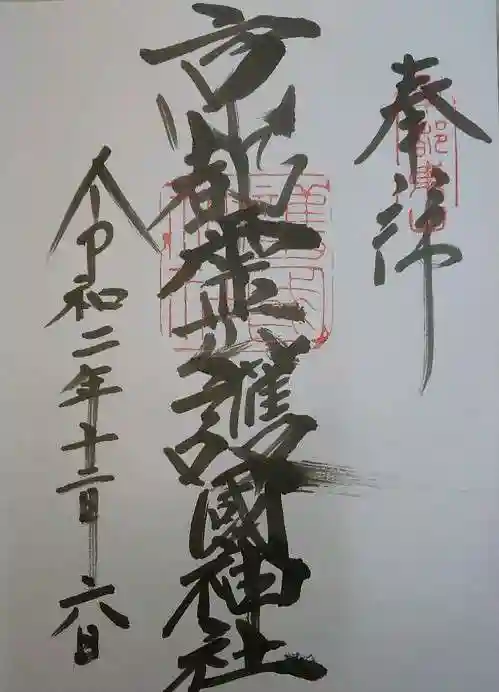 奉拝
京都東山
京都霊山護國神社
令和二年十二月六日